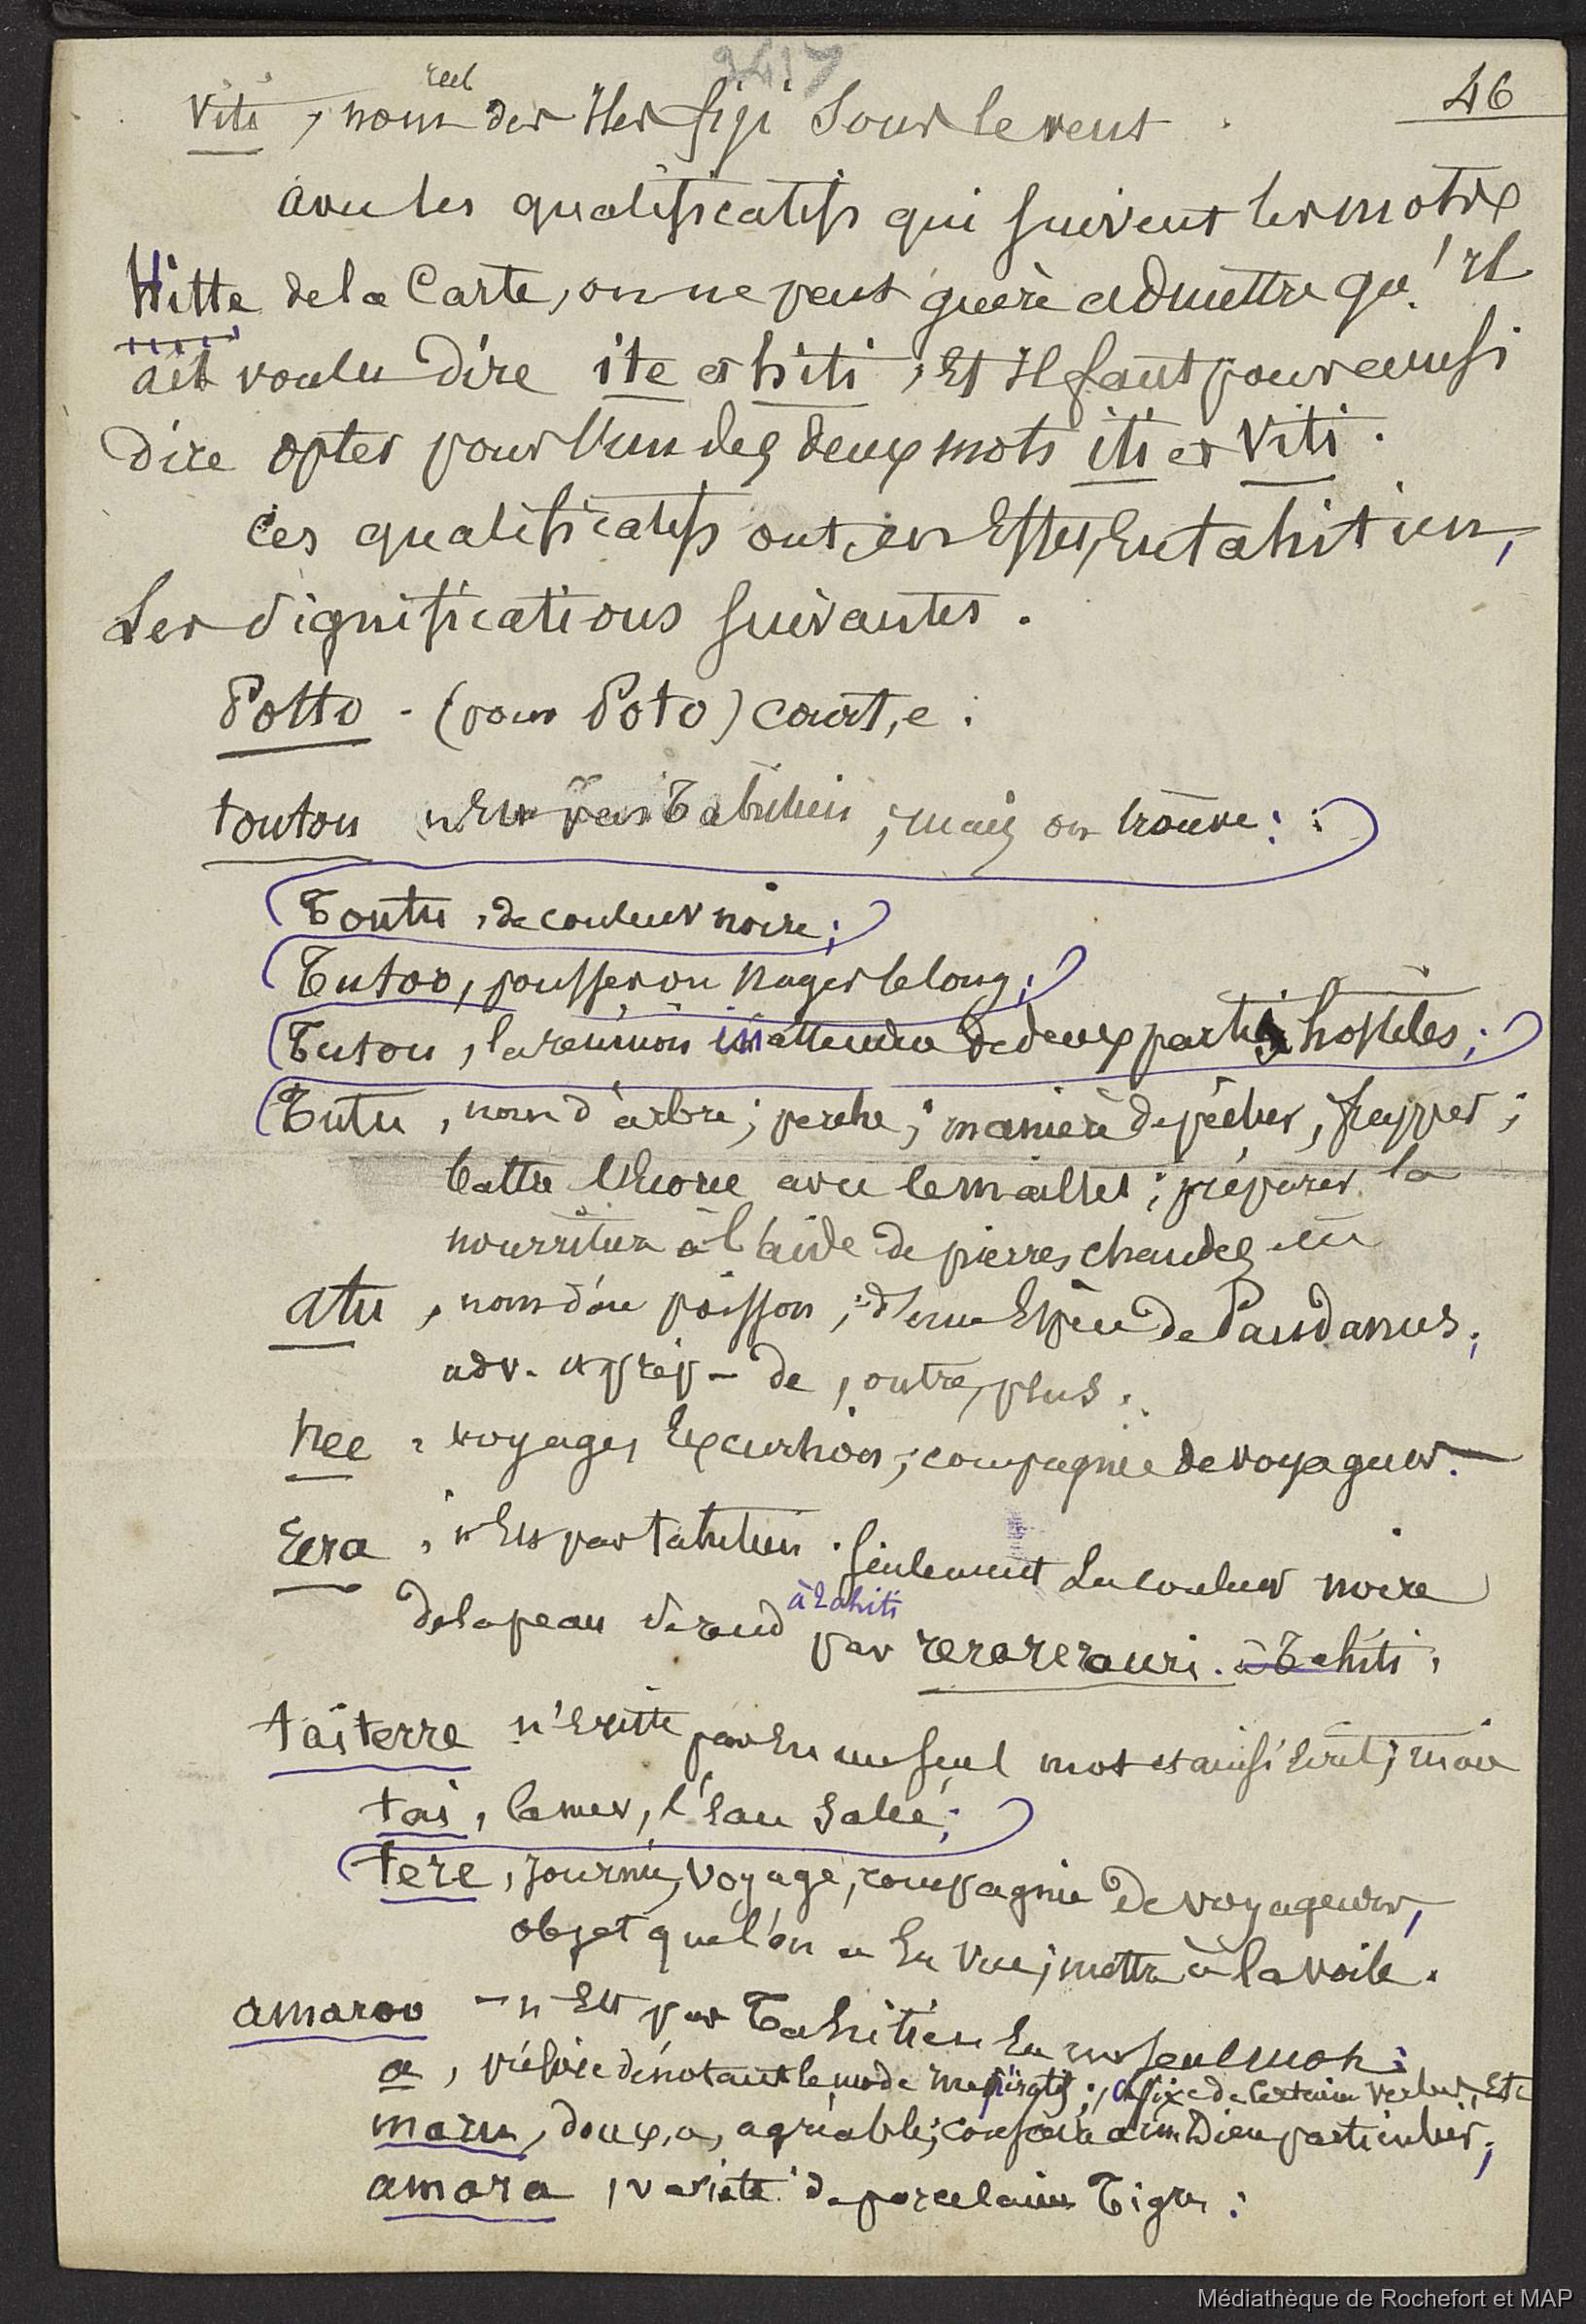 9417
46
réel
Viti, nom des Iles fiji sous le vent.
avec les qualificatifs qui suivent les mots
Hitte de la Carte, on ne peut guère admettre qu'il
ait voulu dire ite et hiti ; Et Il faut pour ainsi
dire opter pour l'un des deux mots iti et Viti.
Ces qualificatifs ont, en Effet, En tahitien,
Les significations suivantes.
Potto - (pour Poto) court, e :
toutou n'Est pas Tahitien ; mais on trouve :
Toutu, de couleur noire ;
Tutoo, pousser ou nager le long ;
Tutou, la réunion inattendue de deux partis hostiles ;
Tutu, nom d'arbre ; perche ; manière de pêcher, frapper ;
battre l'Ecorce avec le maillet ; préparer la
nourriture à l'aide de pierres chaudes
atu, nom d'un poisson ; d'une Espèce de Pandanus ;
adv. et prép - de, outre, plus.
hee, voyage, Excursion ; compagnie de voyageurs.
Eera, n'Est pas tahitien. Seulement La couleur noire
à Tahiti
de la peau se rend par rerarerauri. à Tahiti.
taiterre n'Existe pas En un seul mot et ainsi Ecrit ; mais
tai, la mer, l'Eau salée ;
tere, journée, voyage, compagnie de voyageurs,
objet que l'on a En vue ; mettre à la voile.
amaroo - n'Est pas Tahitien En un seul mot :
a, préfixe dénotant le mode impératif ; affixe de certains verbes, Etc
maru, doux, a, agréable ; consacré à un Dieu particulier ;
amara, variété de porcelaine Tigre :
Médiathèque de Rochefort et MAP